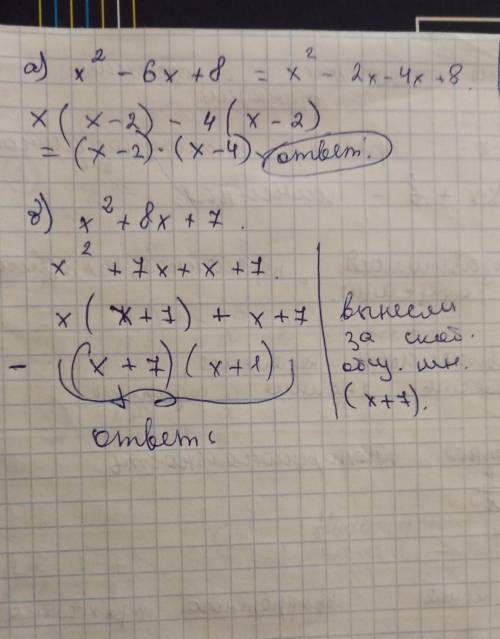 а) x² - 6x + 8 = x² - 2x - 4x + 8.
x( x-2) - 4(x-2)
= (x-2)·(x-4) ответ.
б) x² + 8x + 7.
x² + 7x + x + 7.
x( x+7) + x+7
- (x+7)(x+1)
ответ
вынесли
за скоб.
общ. мн.
(x+7).